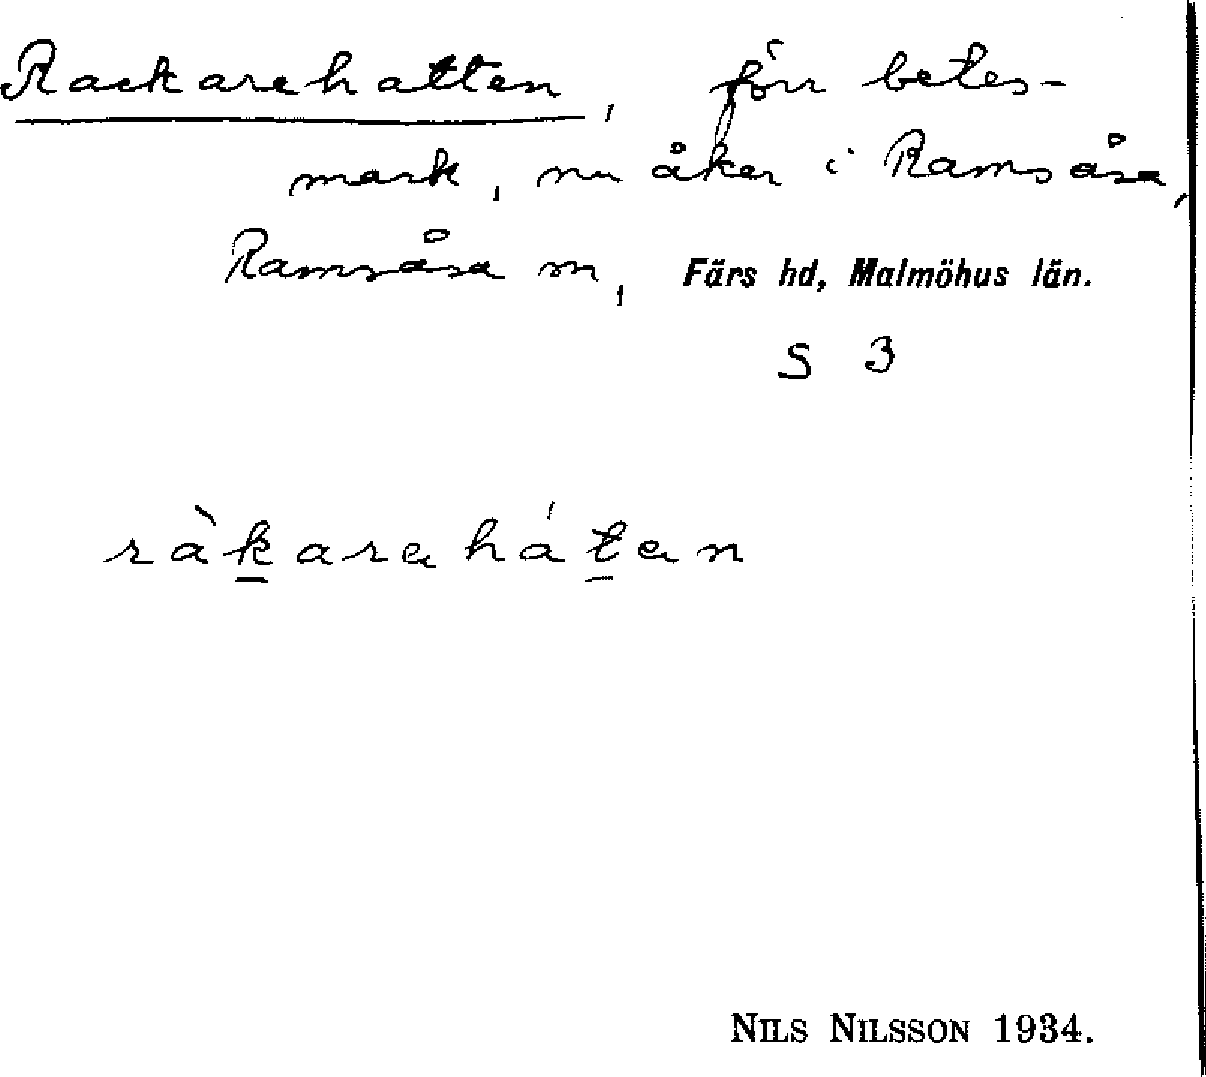 Rackarehatten, förr betes-
mark, nu åker i Ramsåsa,
Ramsåsa sn, Färs hd, Malmöhus län.
S 3
ràkarahátan
NILS NILSSON 1934.